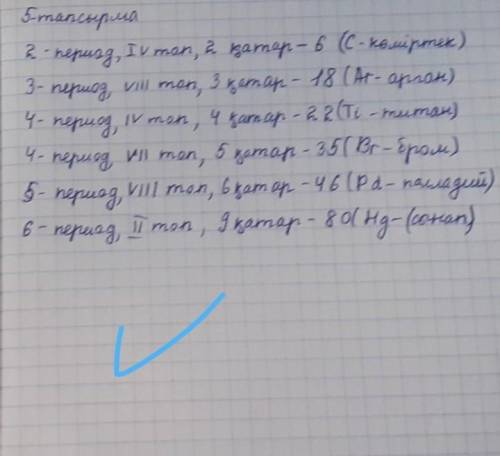 5-тапсырма
2-период, IV топ, 2 қатар - 6 (C - көміртек)
3-период, VIII топ, 3 қатар - 18 (Ar - аргон)
4-период, IV топ, 4 қатар - 22 (Ti - титан)
4-период, VII топ, 5 қатар - 35 (Br - бром)
5-период, VIII топ, 6 қатар - 46 (Pd - палладий)
6-период, II топ, 9 қатар - 80 (Hg - (сынап)